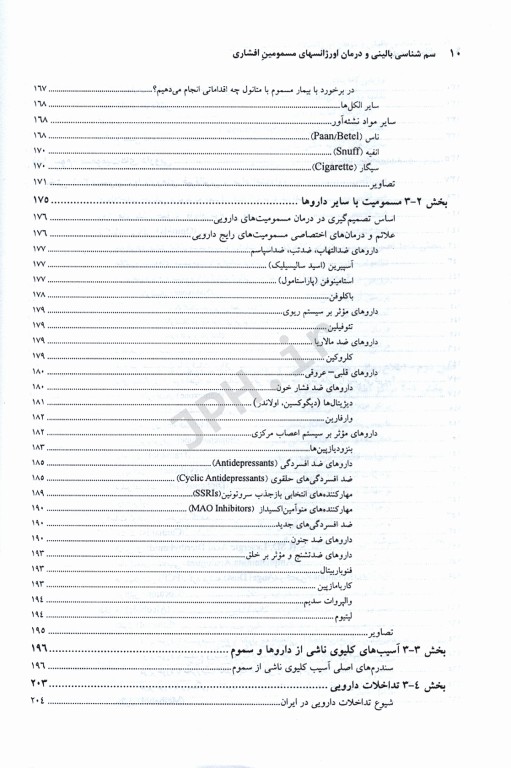 ۱۰ سم شناسی بالینی و درمان اورژانسهای مسمومین افشاری
در برخورد با بیمار مسموم با متانول چه اقداماتی انجام می‌دهیم؟ ۱۶۷
سایر الکل‌ها ۱۶۸
سایر مواد نشئه‌آور ۱۶۸
ناس (Paan/Betel) ۱۶۸
انفیه (Snuff) ۱۷۰
سیگار (Cigarette) ۱۷۰
تصاویر ۱۷۱
بخش ۲-۳ مسمومیت با سایر داروها ۱۷۵
اساس تصمیم‌گیری در درمان مسمومیت‌های دارویی ۱۷۶
علائم و درمان‌های اختصاصی مسمومیت‌های رایج دارویی ۱۷۶
داروهای ضدالتهاب، ضدتب، ضداسپاسم ۱۷۷
آسپیرین (اسید سالیسیلیک) ۱۷۷
استامینوفن (پاراستامول) ۱۷۷
باکلوفن ۱۷۸
داروهای مؤثر بر سیستم ریوی ۱۷۹
تئوفیلین ۱۷۹
داروهای ضد مالاریا ۱۷۹
کلروکین ۱۷۹
داروهای قلبی- عروقی ۱۸۰
داروهای ضد فشار خون ۱۸۰
دیژیتال‌ها (دیگوکسین، اولاندر) ۱۸۱
وارفارین ۱۸۲
داروهای مؤثر بر سیستم اعصاب مرکزی ۱۸۲
بنزودیازپین‌ها ۱۸۳
داروهای ضد افسردگی (Antidepressants) ۱۸۵
ضد افسردگی‌های حلقوی (Cyclic Antidepressants) ۱۸۵
مهارکننده‌های انتخابی بازجذب سروتونین (SSRIs) ۱۸۹
مهارکننده‌های منوآمین‌اکسیداز (MAO Inhibitors) ۱۹۰
ضد افسردگی‌های جدید ۱۹۰
داروهای ضد جنون ۱۹۰
داروهای ضدتشنج و مؤثر بر خلق ۱۹۳
فنوباربیتال ۱۹۳
کاربامازپین ۱۹۳
والپروات سدیم ۱۹۴
لیتیوم ۱۹۴
تصاویر ۱۹۵
بخش ۳-۳ آسیب‌های کلیوی ناشی از داروها و سموم ۱۹۶
سندرم‌های اصلی آسیب کلیوی ناشی از سموم ۱۹۶
بخش ۴-۳ تداخلات دارویی ۲۰۳
شیوع تداخلات دارویی در ایران ۲۰۴
JPH.ir